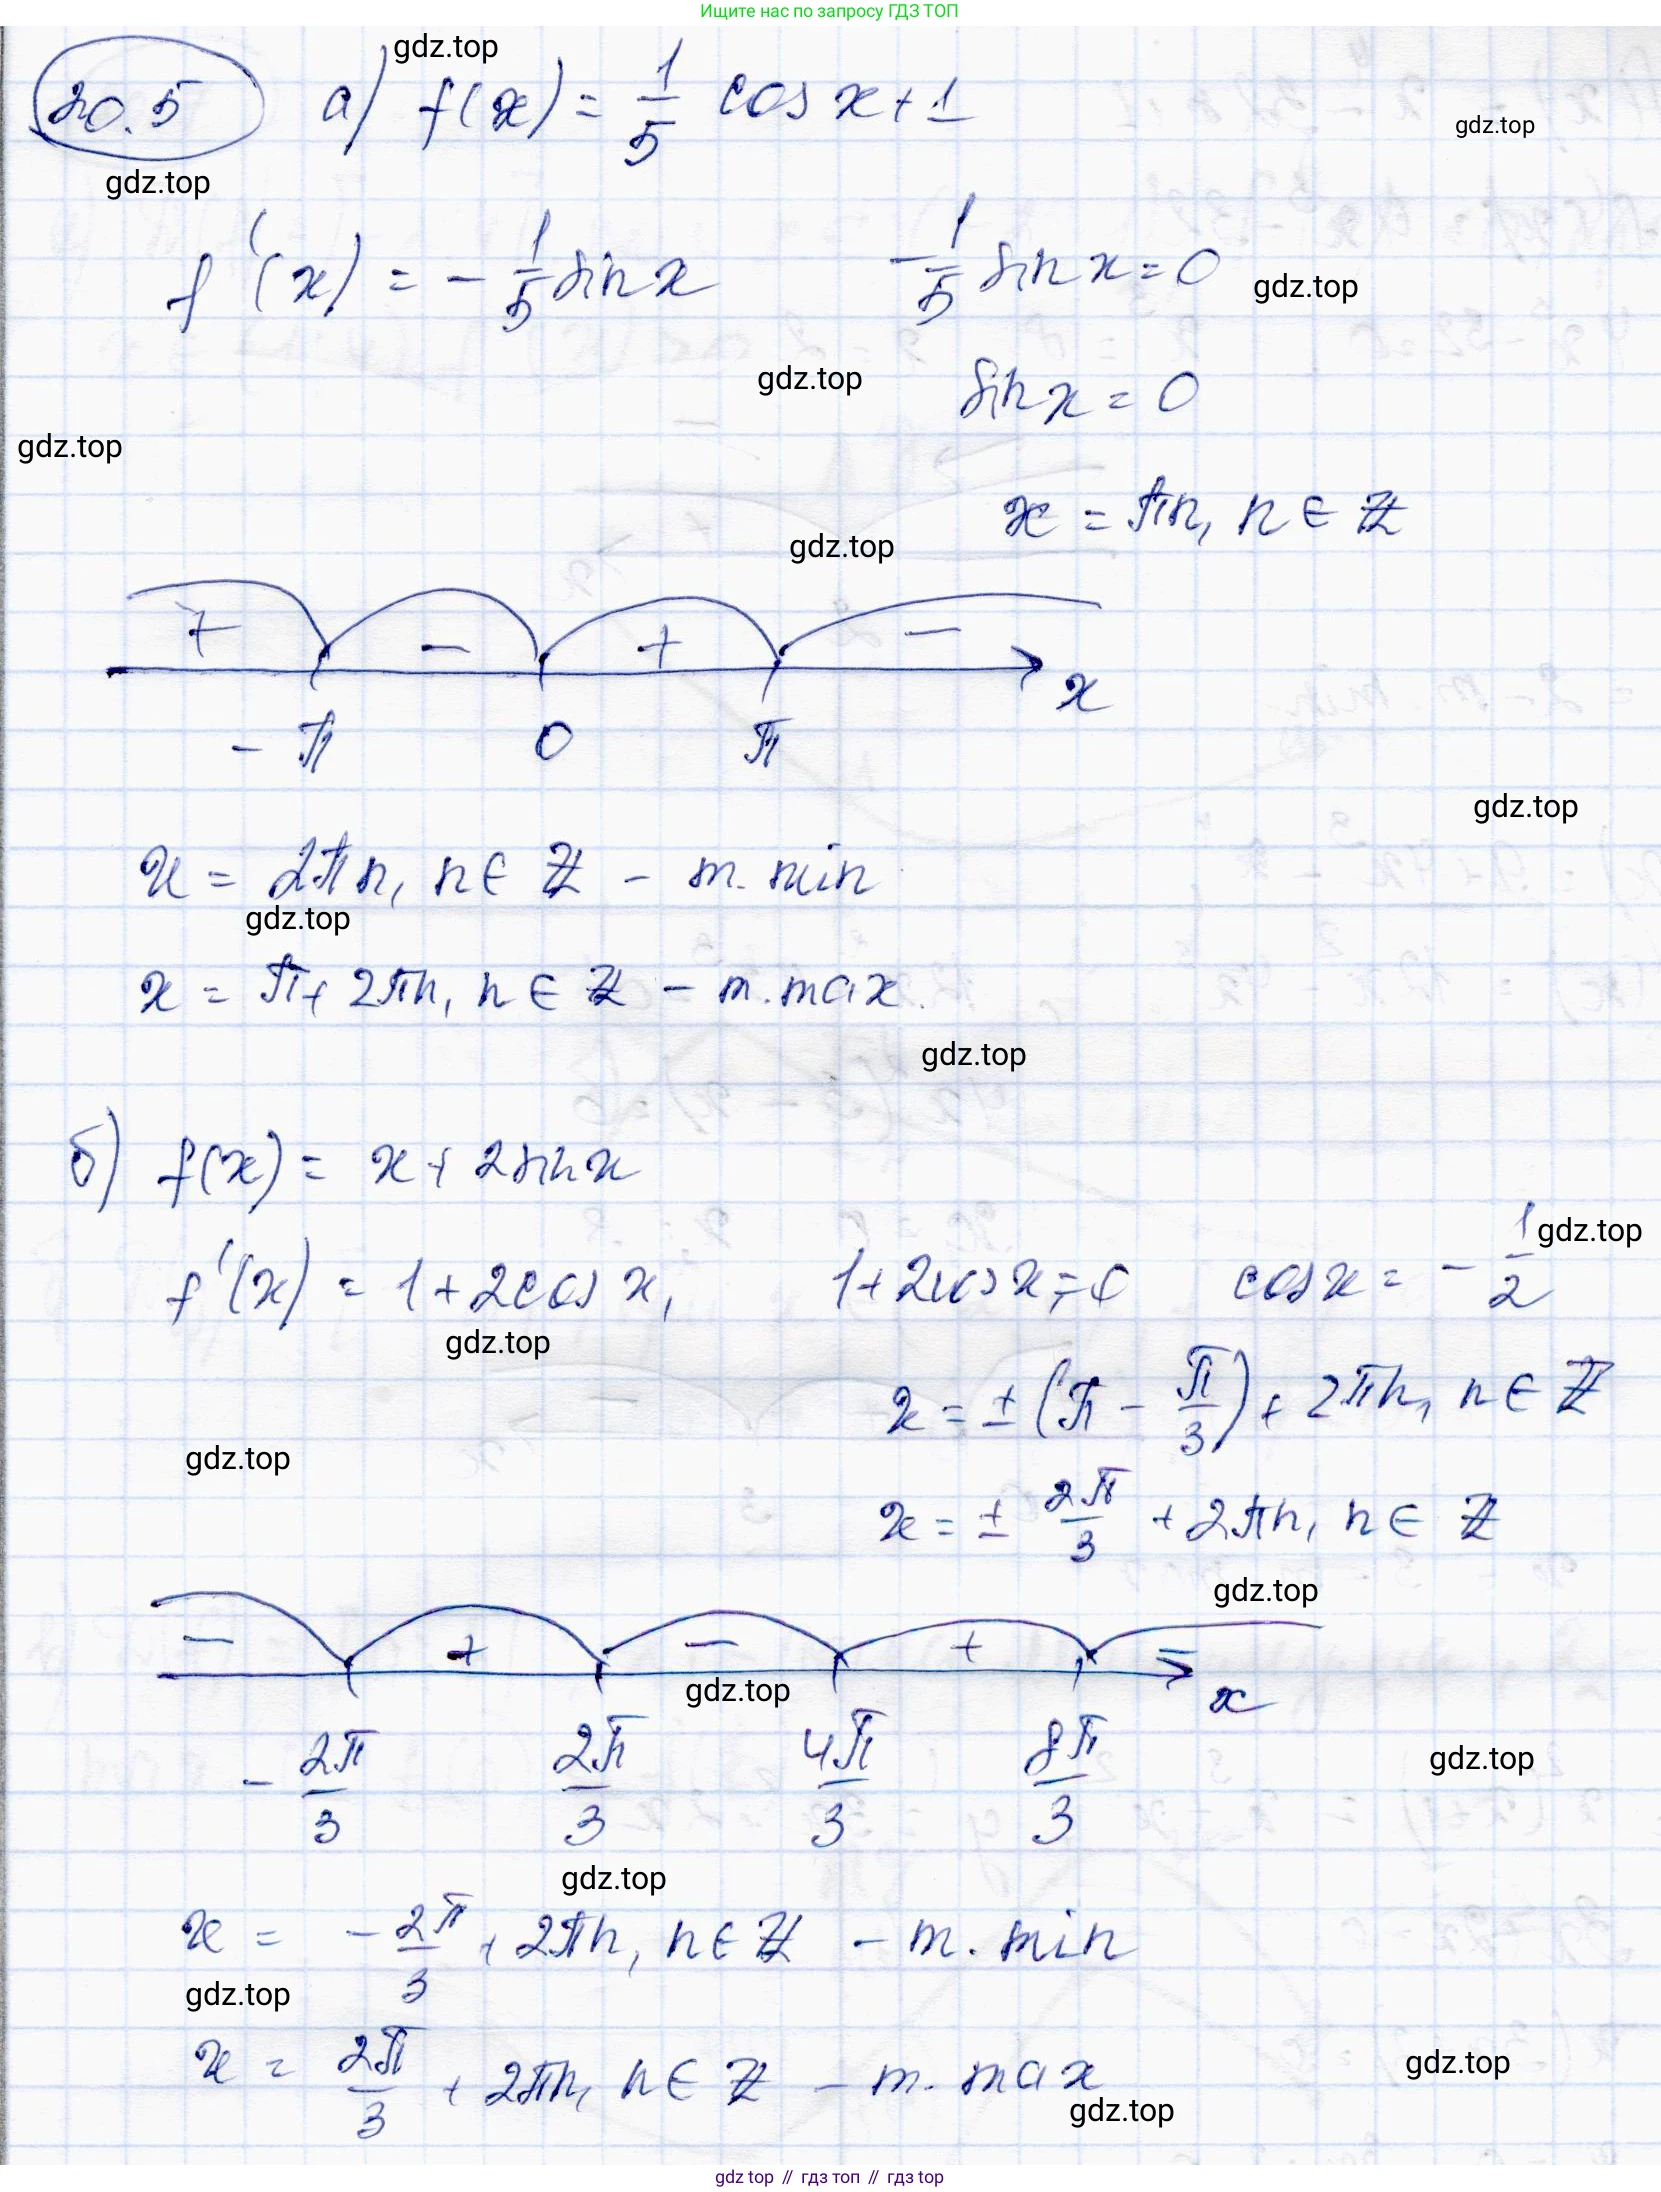 Ищите нас по запросу ГДЗ ТОП
gdz.top
20.5 а) f(x) = 1/5 cos x + 1
gdz.top
gdz.top
f'(x) = - 1/5 sin x    - 1/5 sin x = 0
gdz.top
gdz.top
sin x = 0
gdz.top
x = πn, n ∈ Z
gdz.top
+ - + -
x
-π 0 π
gdz.top
x = 2πn, n ∈ Z - т. min
gdz.top
x = π + 2πn, n ∈ Z - т. max.
gdz.top
б) f(x) = x + 2 sin x
gdz.top
f'(x) = 1 + 2cos x,    1 + 2cos x = 0    cos x = - 1/2
gdz.top
x = ± (π - π/3) + 2πn, n ∈ Z
gdz.top
x = ± 2π/3 + 2πn, n ∈ Z
gdz.top
- + - + -
gdz.top
x
- 2π/3 2π/3 4π/3 8π/3
gdz.top
gdz.top
x = - 2π/3 + 2πn, n ∈ Z - т. min
gdz.top
x = 2π/3 + 2πn, n ∈ Z - т. max
gdz.top
gdz.top
gdz top // гдз топ // гдз top